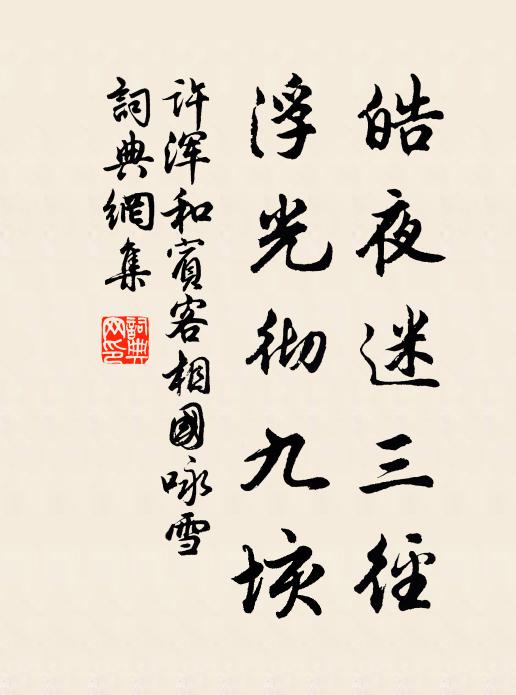 皓夜迷三徑
浮光彻九垓
许渾和賓客相國咏雪
詞典網集
詞典
网印